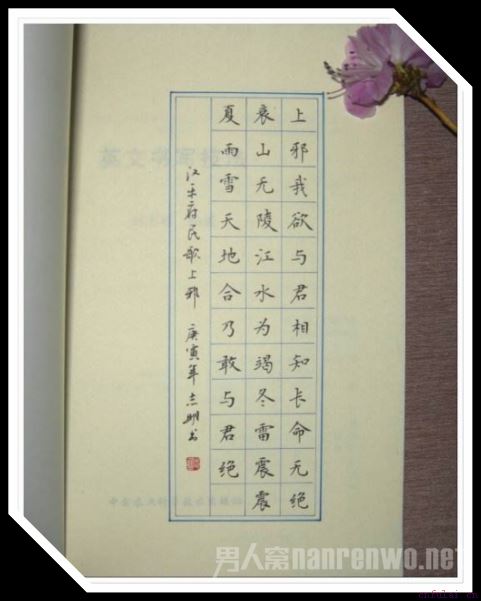 上邪我欲与君相知长命无绝
衰山无陵江水为竭冬雷震震
夏雨雪天地合乃敢与君绝
汉乐府民歌上邪 庚寅年志明书
男人窝nanrenwo.net